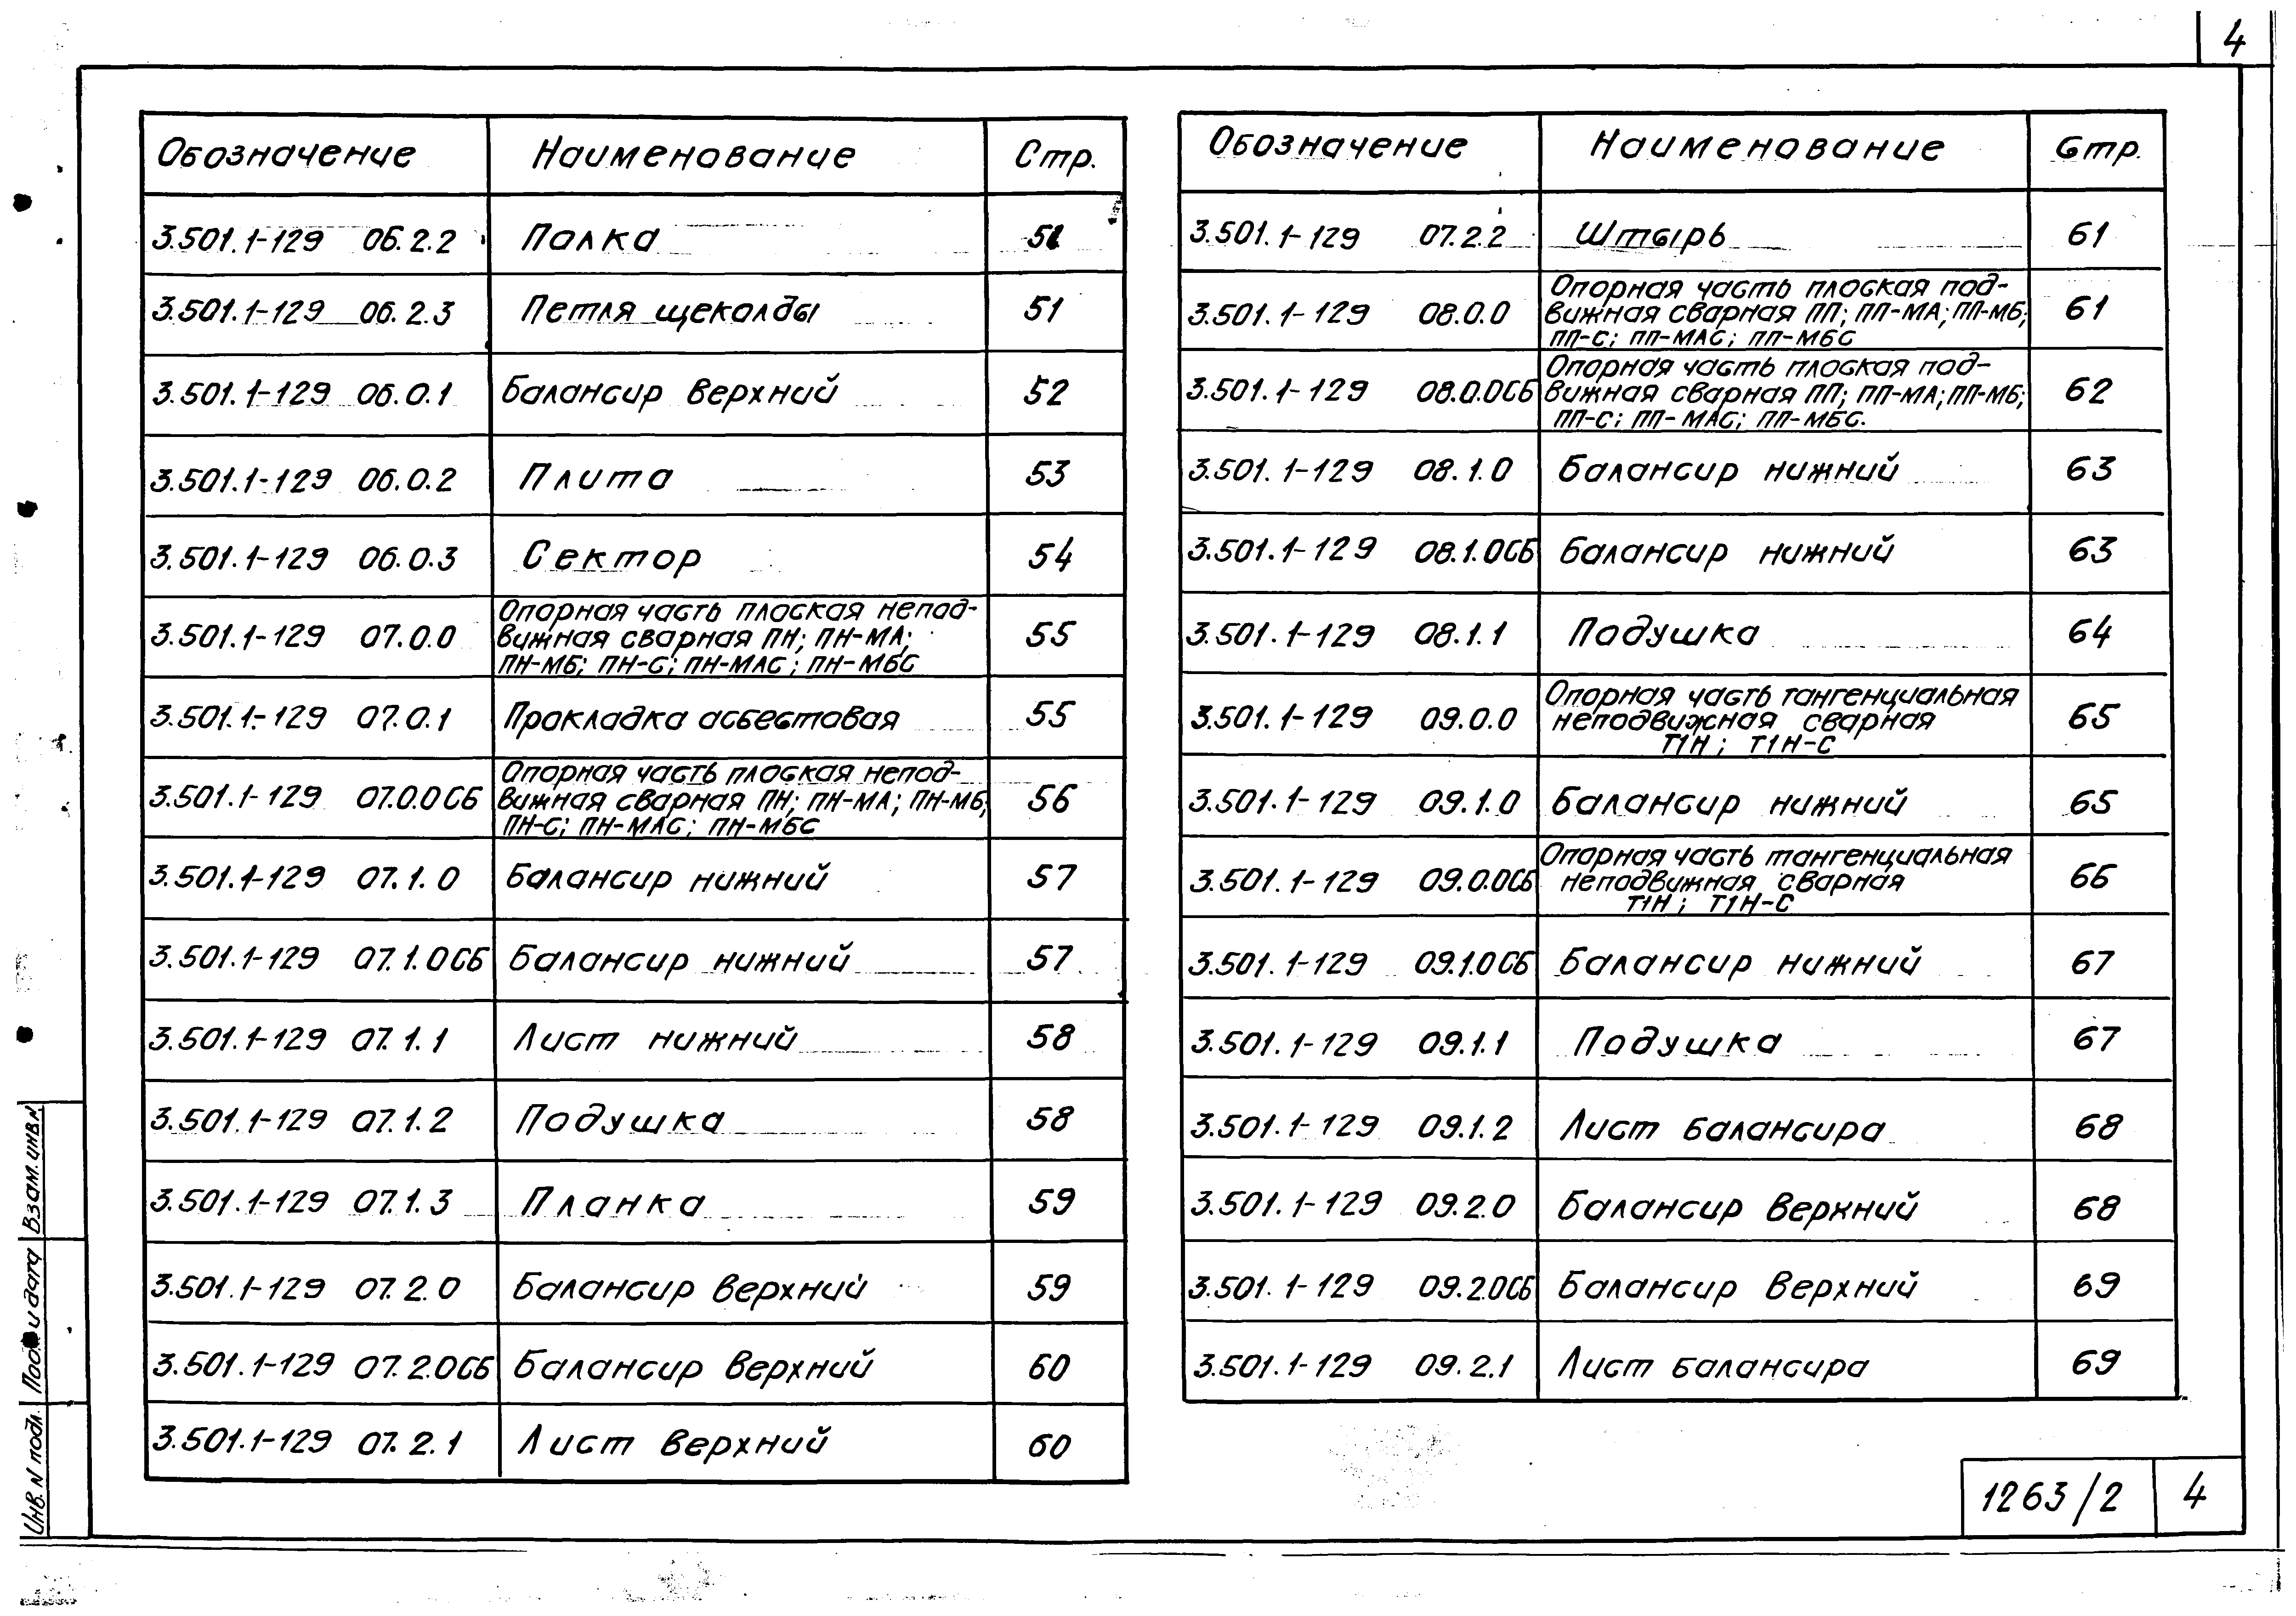 4
Обозначение Наименование Стр.
3.501.1-129 06.2.2 Полка 51
3.501.1-129 06.2.3 Петля щеколды 51
3.501.1-129 06.0.1 Балансир верхний 52
3.501.1-129 06.0.2 Плита 53
3.501.1-129 06.0.3 Сектор 54
Опорная часть плоская непод-
3.501.1-129 07.0.0 вижная сварная ПН; ПН-МА; 55
ПН-МБ; ПН-С; ПН-МАС; ПН-МБС
3.501.1-129 07.0.1 Прокладка асбестовая 55
Опорная часть плоская непод-
3.501.1-129 07.0.0СБ вижная сварная ПН; ПН-МА; ПН-МБ; 56
ПН-С; ПН-МАС; ПН-МБС
3.501.1-129 07.1.0 Балансир нижний 57
3.501.1-129 07.1.0СБ Балансир нижний 57
3.501.1-129 07.1.1 Лист нижний 58
3.501.1-129 07.1.2 Подушка 58
3.501.1-129 07.1.3 Планка 59
3.501.1-129 07.2.0 Балансир верхний 59
3.501.1-129 07.2.0СБ Балансир верхний 60
3.501.1-129 07.2.1 Лист верхний 60
Обозначение Наименование Стр.
3.501.1-129 07.2.2 Штырь 61
Опорная часть плоская под-
3.501.1-129 08.0.0 вижная сварная ПП; ПП-МА; ПП-МБ; 61
ПП-С; ПП-МАС; ПП-МБС
Опорная часть плоская под-
3.501.1-129 08.0.0СБ вижная сварная ПП; ПП-МА; ПП-МБ; 62
ПП-С; ПП-МАС; ПП-МБС.
3.501.1-129 08.1.0 Балансир нижний 63
3.501.1-129 08.1.0СБ Балансир нижний 63
3.501.1-129 08.1.1 Подушка 64
Опорная часть тангенциальная
3.501.1-129 09.0.0 неподвижная сварная 65
Т1Н; Т1Н-С
3.501.1-129 09.1.0 Балансир нижний 65
Опорная часть тангенциальная
3.501.1-129 09.0.0СБ неподвижная сварная 66
Т1Н; Т1Н-С
3.501.1-129 09.1.0СБ Балансир нижний 67
3.501.1-129 09.1.1 Подушка 67
3.501.1-129 09.1.2 Лист балансира 68
3.501.1-129 09.2.0 Балансир верхний 68
3.501.1-129 09.2.0СБ Балансир верхний 69
3.501.1-129 09.2.1 Лист балансира 69
Инв. N подл. Подп и дата Взам. инв. N
1263/2 4